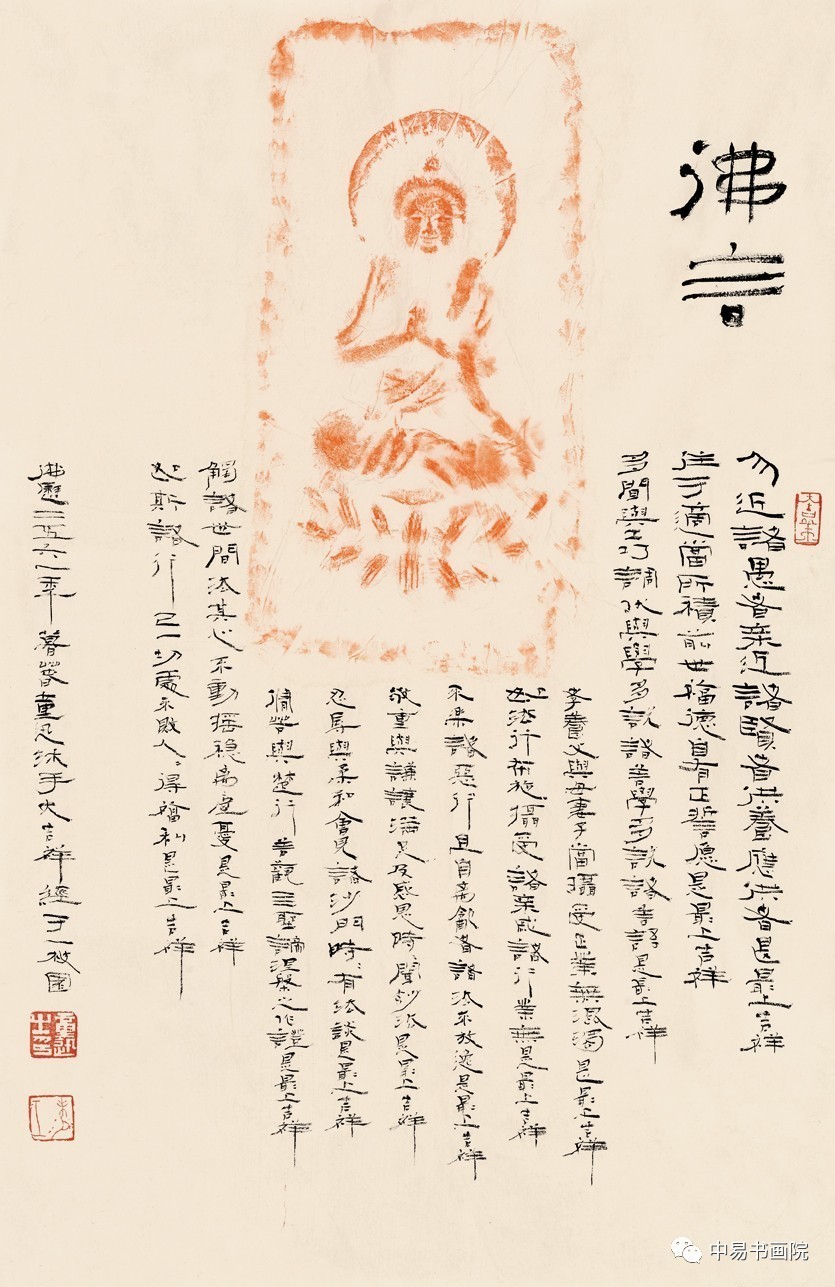 佛言
勿近諸愚者亲近諸賢者供養應供者是最上吉祥
住于適當所積前世福德自有正誓愿是最上吉祥
多聞與工巧調伏與學多說諸善學多說諸善語是最上吉祥
孝養父與母妻子當攝受正業無混濁是最上吉祥
如法行布施攝受諸亲戚諸行業無是最上吉祥
不樂諸惡行且自离飲者諸法不放逸是最上吉祥
敬重與謙讓滿足及感恩時時聞妙法是最上吉祥
忍辱與柔和會見諸沙門時時有法談是最上吉祥
脩苦與楚行善觀三聖諦涅槃之作證是最上吉祥
觸諸世間法其心不動摇稳离虛憂是最上吉祥
如斯諸行已一切處不敗人人得福利是最上吉祥
佛歷二五六一年暮春童 沐手 大吉祥經于一
中易书画院